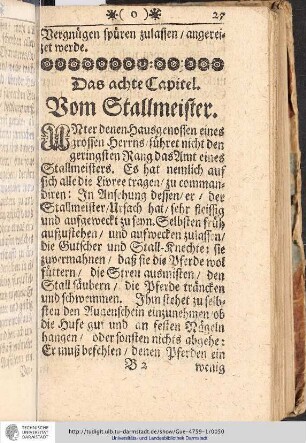 *( o )* 25
Vergnügen spüren zulassen / angerei-
zet werde.
Das achte Capitel.
Vom Stallmeister.
UNter denen Hausgenossen eines
grossen Herrns / führet nicht den
geringsten Rang das Amt eines
Stallmeisters. Es hat nemlich auf
sich alle die Livree tragen / zu comman-
diren: In Ansehung dessen / er / der
Stallmeister / Ursach hat / sehr fleissig
und aufgeweckt zu seyn. Selbsten früh
aufzustehen / und aufwecken zulassen /
die Gutscher und Stall-Knechte: sie
zuvermahnen / daß sie die Pferde wol
füttern / die Streu ausmisten / den
Stall säubern / die Pferde träncken
und schwemmen. Ihm stehet zu selb-
sten den Augenschein einzunehmen ob
die Hufe gut und an festen Nägeln
hangen / oder sonsten nichts abgehe:
Er muß befehlen / denen Pferden ein
B 2 wenig
TECHNISCHE
UNIVERSITÄT
DARMSTADT
http://tudigit.ulb.tu-darmstadt.de/show/Gue-4759-1/0050
Universitäts- und Landesbibliothek Darmstadt